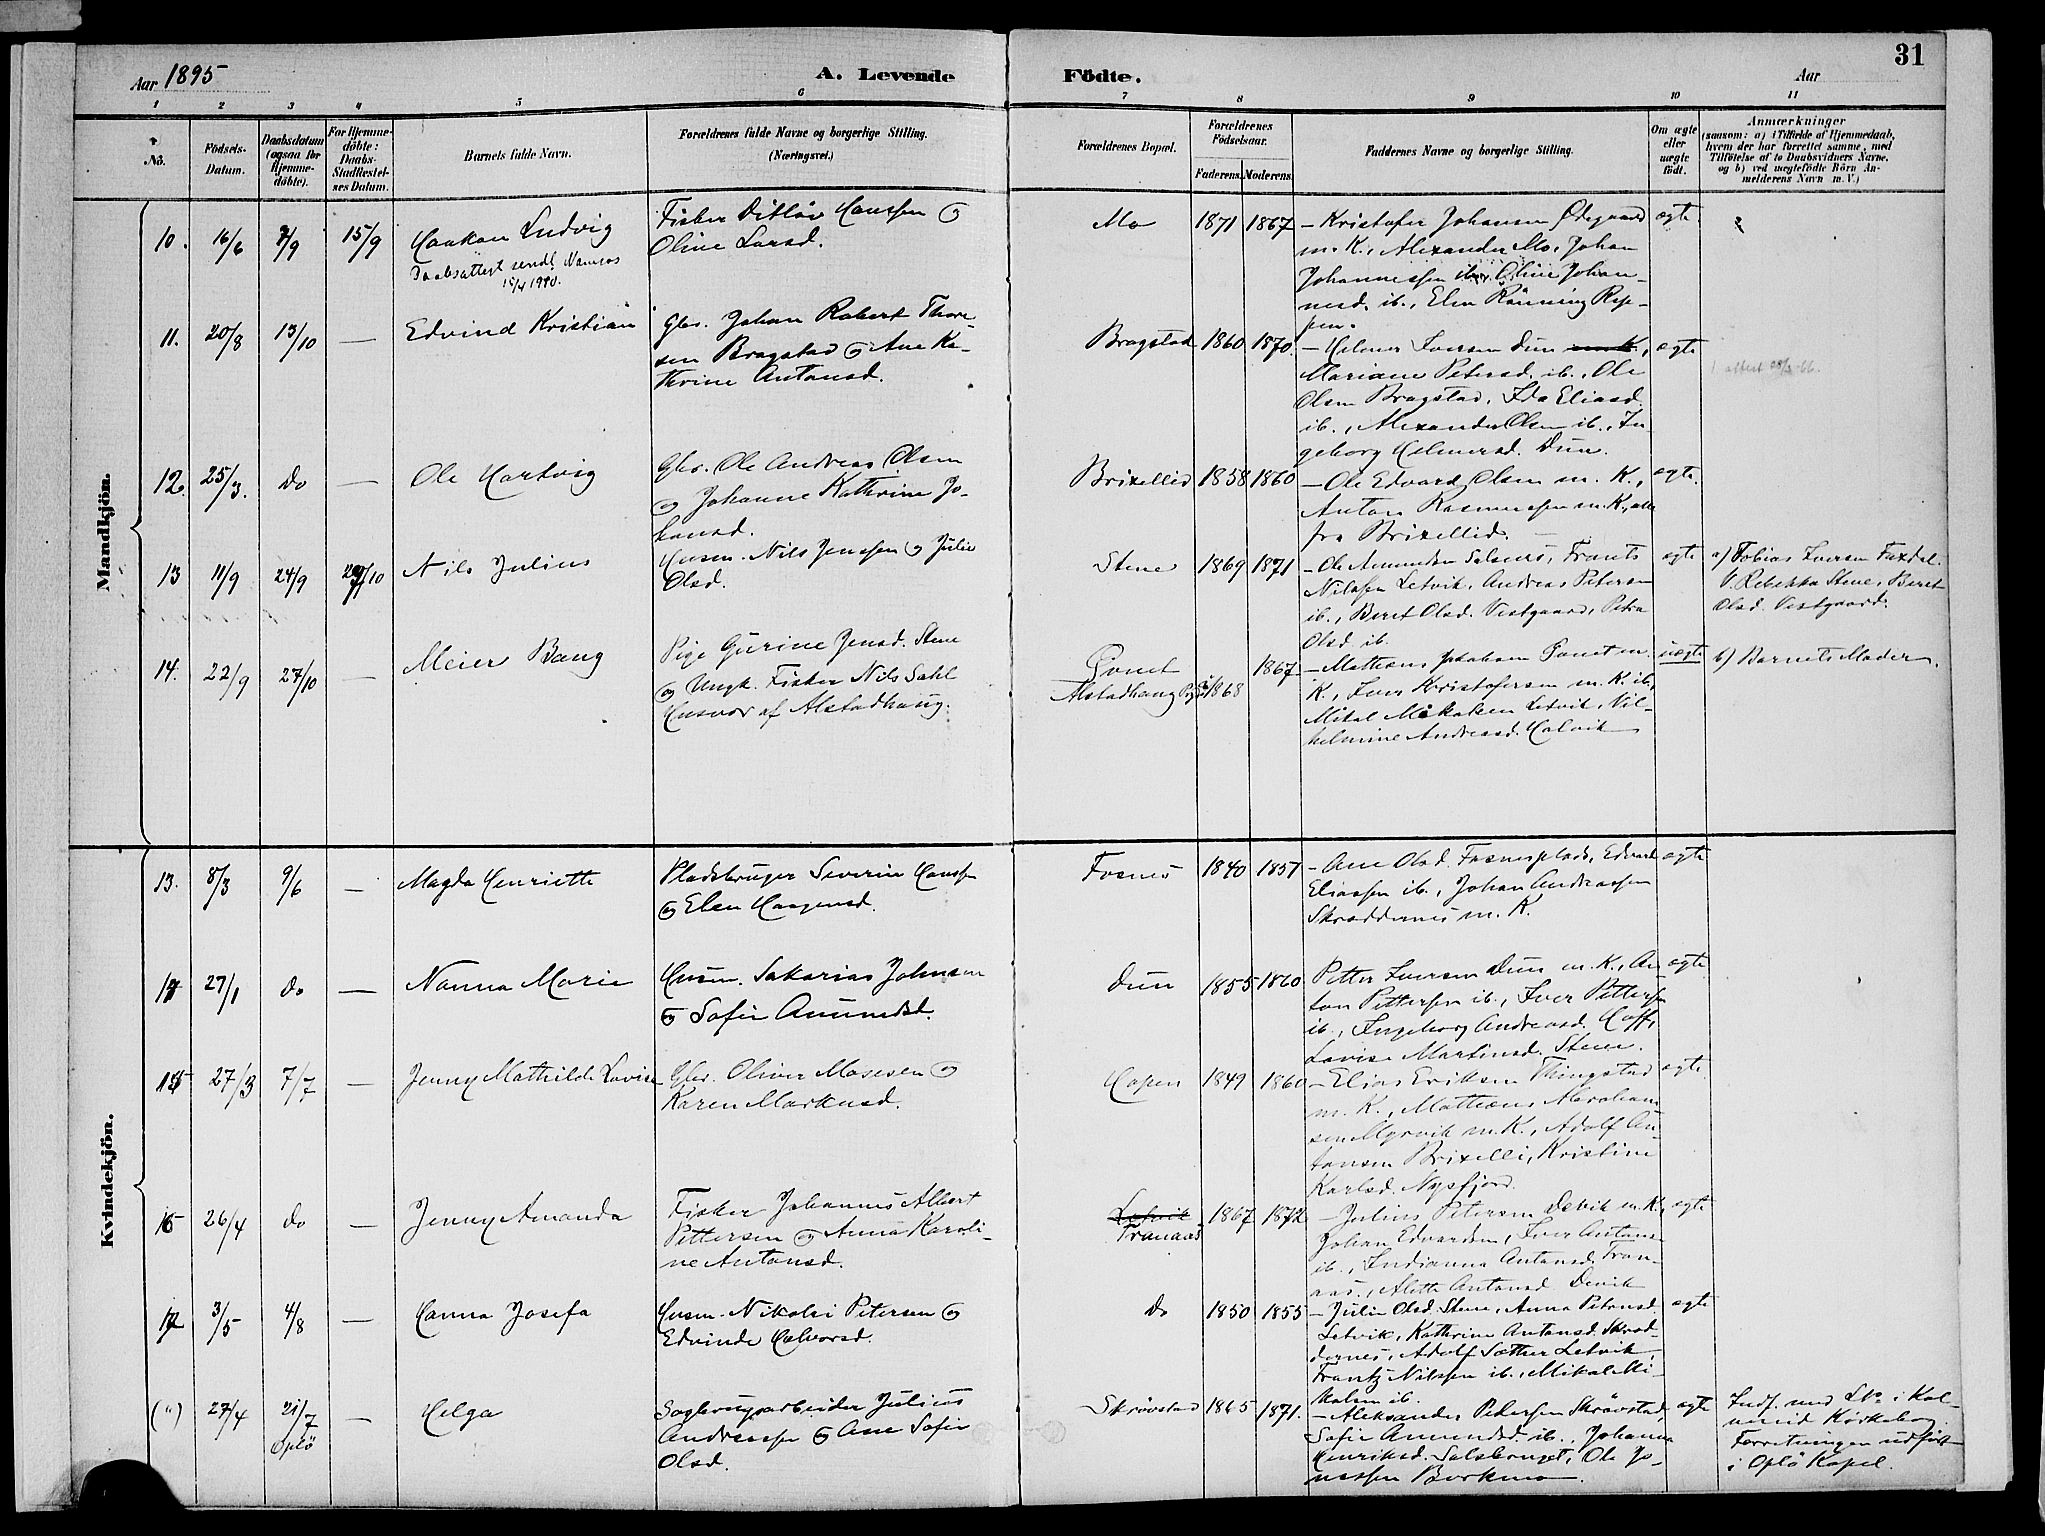 31
Aar 1895
A. Levende
Födte.
Aar
1 2 3 4 5 6 7 8 9 10 11
No.
Födsels-Datum.
Daabsdatum (ogsaa for Hjemme-döbte).
For Hjemme-döbte: Daabs-Stadfæstel-ses Datum.
Barnets fulde Navn.
Forældrenes fulde Navne og borgerlige Stilling. (Næringsvei.)
Forældrenes Bopæl.
Forældrenes Födselsaar.
Faderens.
Moderens.
Faddernes Navne og borgerlige Stilling.
Om ægte eller uægte födt.
Anmærkninger
(saasom: a) i Tilfælde af Hjemmedaab,
hvem der har forrettet samme, med
Tilföielse af to Daabsvidners Navne,
og b) ved uægtefödte Börn An-
melderens Navn m. V.)
Mandkjön.
10. 16/6 7/9 15/9 Haakon Ludvig
Daabsattest sendt Namsos
15/4 1940.
Fisker Ditløv Hanssen og
Oline Larsd.
Mo 1871 1867
- Kristofer Johansen Ødegaard
m. K., Alexander Mo, Johan
Johannessen ib., Oline Johan-
nesd. ib., Elen Rönning Rep-
pen.
ægte
11. 20/8 13/10 — Edvind Kristian
Gbr. Johan Robert Thore-
sen Bragstad og Ane Ka-
thrine Antonsd.
Bragstad 1860 1870.
- Helmer Iversen Dun m. K.,
Mariane Petersd. ib., Ole
Olsen Bragstad, Ida Eliasd.
ib., Alexander Olsen ib., In-
geborg Helmersd. Dun.
ægte
12. 25/3. Do — Ole Hartvig
Gbr. Ole Andreas Olsen
og Johanne Kathrine Jo-
hansd.
Brixellid 1858 1860
- Ole Edvard Olsen m. K.,
Anton Rasmussen m. K., alle
fra Brixellid.
ægte.
13 11/9 24/9 Nils Julius
Husm. Nils Jenssen og Julie
Olsd.
Stene 1869 1871
- Ole Amundsen Salsnes, Frants
Nilssen Letvik, Andreas Petersen
ib., Beret Olsd. Vestgaard, Petra
Olsd ib.
ægte
a) Tobias Iversen Faxdal.
V. Rebekka Stene, Beret
Olsd. Vestgaard.
14. 22/9 27/10 — Meier Bang
Pige Gurine Jensd. Stene
og Ungk. Fisker Nils Dahl
Husvær af Alstadhaug.
Alstadhaug 1868 1867
- Mathæus
K., Iver Kristofersen m. K. ib.,
Mikal Mikalsen Letvik, Vil-
helmine Andreasd. Halvik
uægte
b) Barnets Moder.
Kvindekjön.
13. 8/3 9/6 — Magda Henriette
Pladsbruger Severin Hanssen
og Elen Haagensd.
Fosnes 1840 1857
- Ane Olsd. Fosnesplads, Edvard
Eliassen ib., Johan Andreassen
Skraddernes m. K.
ægte
14 27/1 Do — Nanna Marie
Husm. Sakarias Johnsen
og Sofie Amundsd.
Dun 1855 1860
Petter Iversen Dun m. K., An-
ton Pettersen ib., Iver Pettersen
ib., Ingeborg Andreasd. Hoff,
Lovise Martinsd. Stene.
ægte
15 27/3 7/7 — Jenny Mathilde Lovise
Gbr. Oliver Mosesen og
Karen Markusd.
Hopen 1849 1860
- Elias Eriksen Thingstad
m. K., Mathæus Abraham-
sen Myrvik m. K., Adolf An-
tonsen Brixelli, Kristine
Karlsd. Nysfjord.
ægte.
16 26/4 Do — Jenny Amanda
Fisker Johannes Albert
Pettersen og Anna Karoli-
ne Antonsd.
Letvik
Tranaas
1867 1872
- Julius Petersen Devik m. K.,
Johan Edvardsen, Iver Antons.
ib., Indianna Antonsd. Tran-
aas, Aleth Antonsd Devik
ægte
17 3/5 4/8 — Hanna Josefa
Husm. Nikolai Petersen og
Edvinde Halvorsd.
Do 1850 1855
- Julie Olsd. Stene, Anna Petersd.
Letvik, Kathrine Antonsd. Skrad-
dernes, Adolf Sæther Letvik,
Frantz Nilssen ib., Mikal Mi-
kalsen ib.
ægte
(") 27/4 21/7 Oplö — Helga
Sagbrugsarbeider Julius
Andreassen og Ane Sofie
Olsd.
Skrøvstad 1865 1871.
- Aleksander Pedersen Skrøvstad,
Sofie Amundsd ib., Johanna
Henriksd. Salsbruget, Ole Jo-
nassen Bjørkmo.
ægte
Indf. med No i Kol-
vereid Kirkebog.
Forretningen udført
i Oplö Kapel.